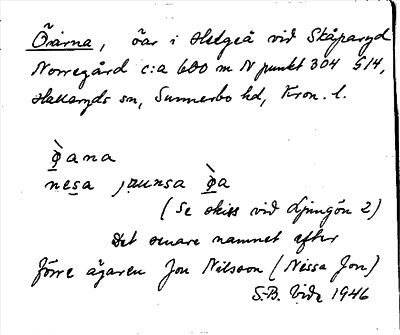 Öarna, öar i Helgeå vid Skåparyd
Norregård c:a 600 m N punkt 304 S14,
Hallaryds sn, Sunnerbo hd, Kron. l.
(Se skiss vid Ljungön 2)
Det senare namnet efter
förre ägaren Jon Nilsson (Nissa Jon)
1946